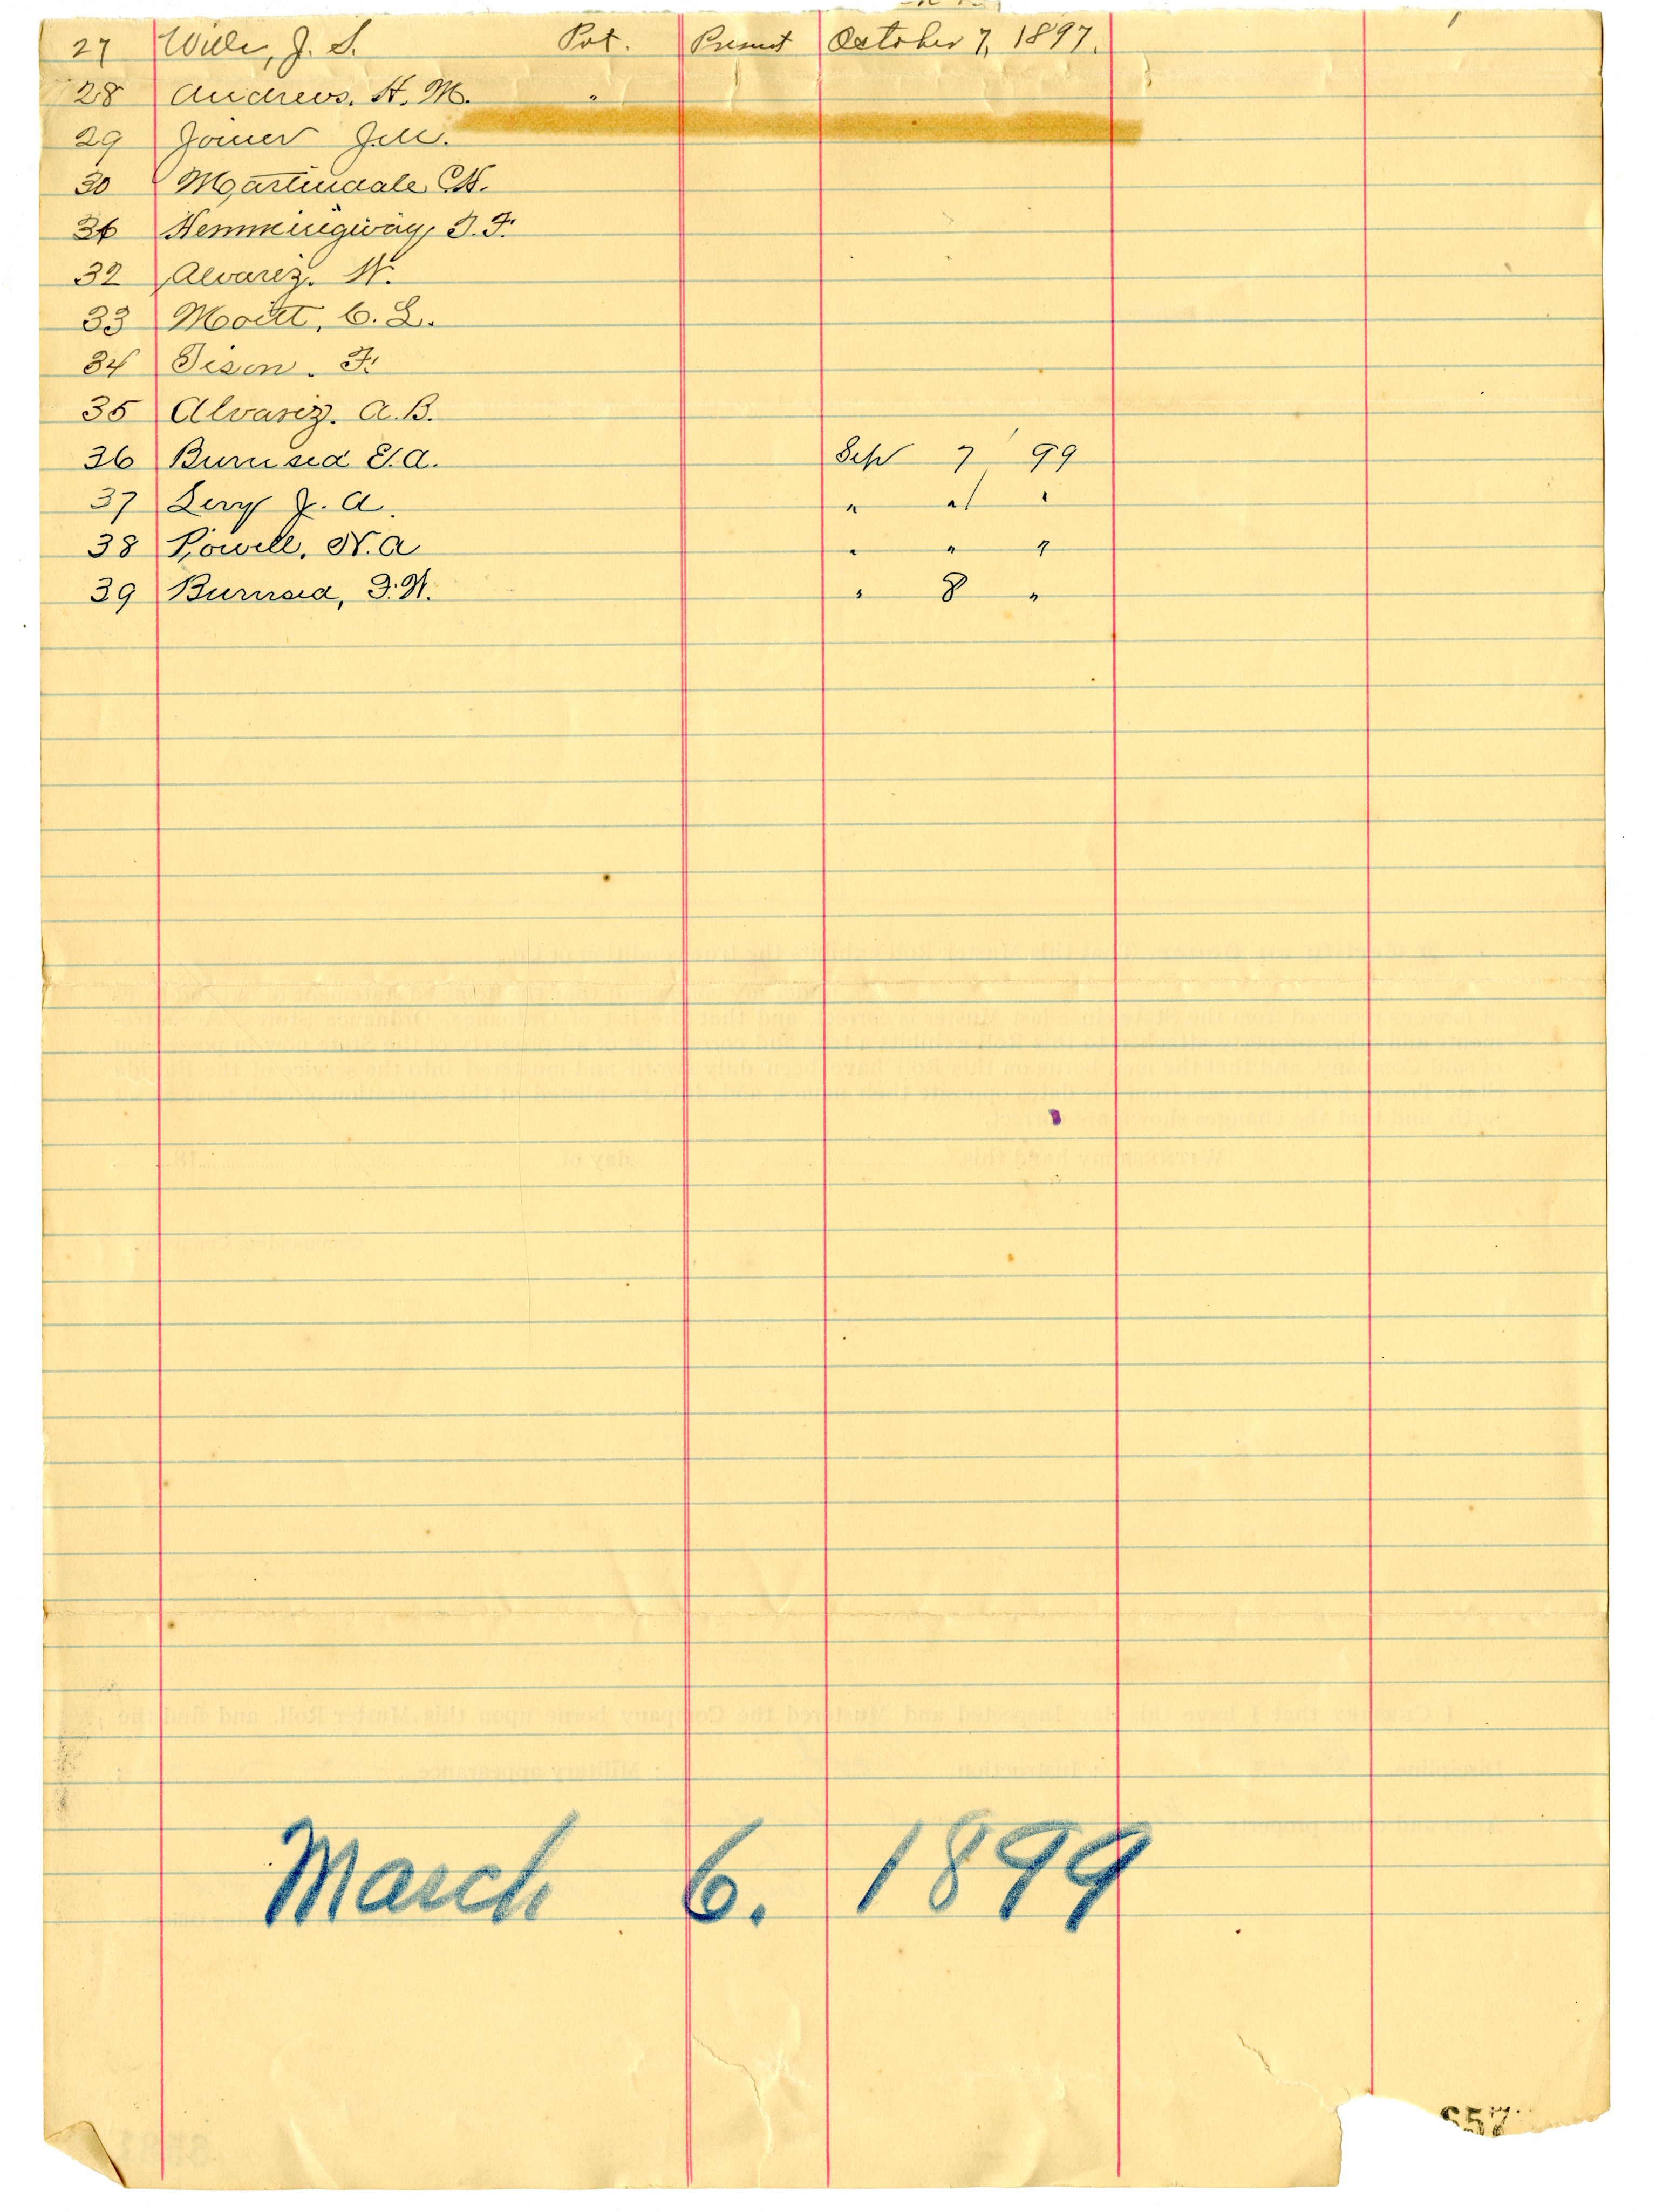 27 Wills, J. S. Pvt. Present October 7, 1897.
28 Andrews. H. M. "
29 Joiner J.M.
30 Martindale C.H.
31 Hemmingway T.F.
32 Alvarez. W.
33 C. L.
34 Tison. F.
35 Alvarez. A.B.
36 Burnsed E.A. Sep 7 99
37 Levy J. A. " " "
38 Powell, N. A " " "
39 Burnsed, F.W. " 8 "
March 6. 1899
657